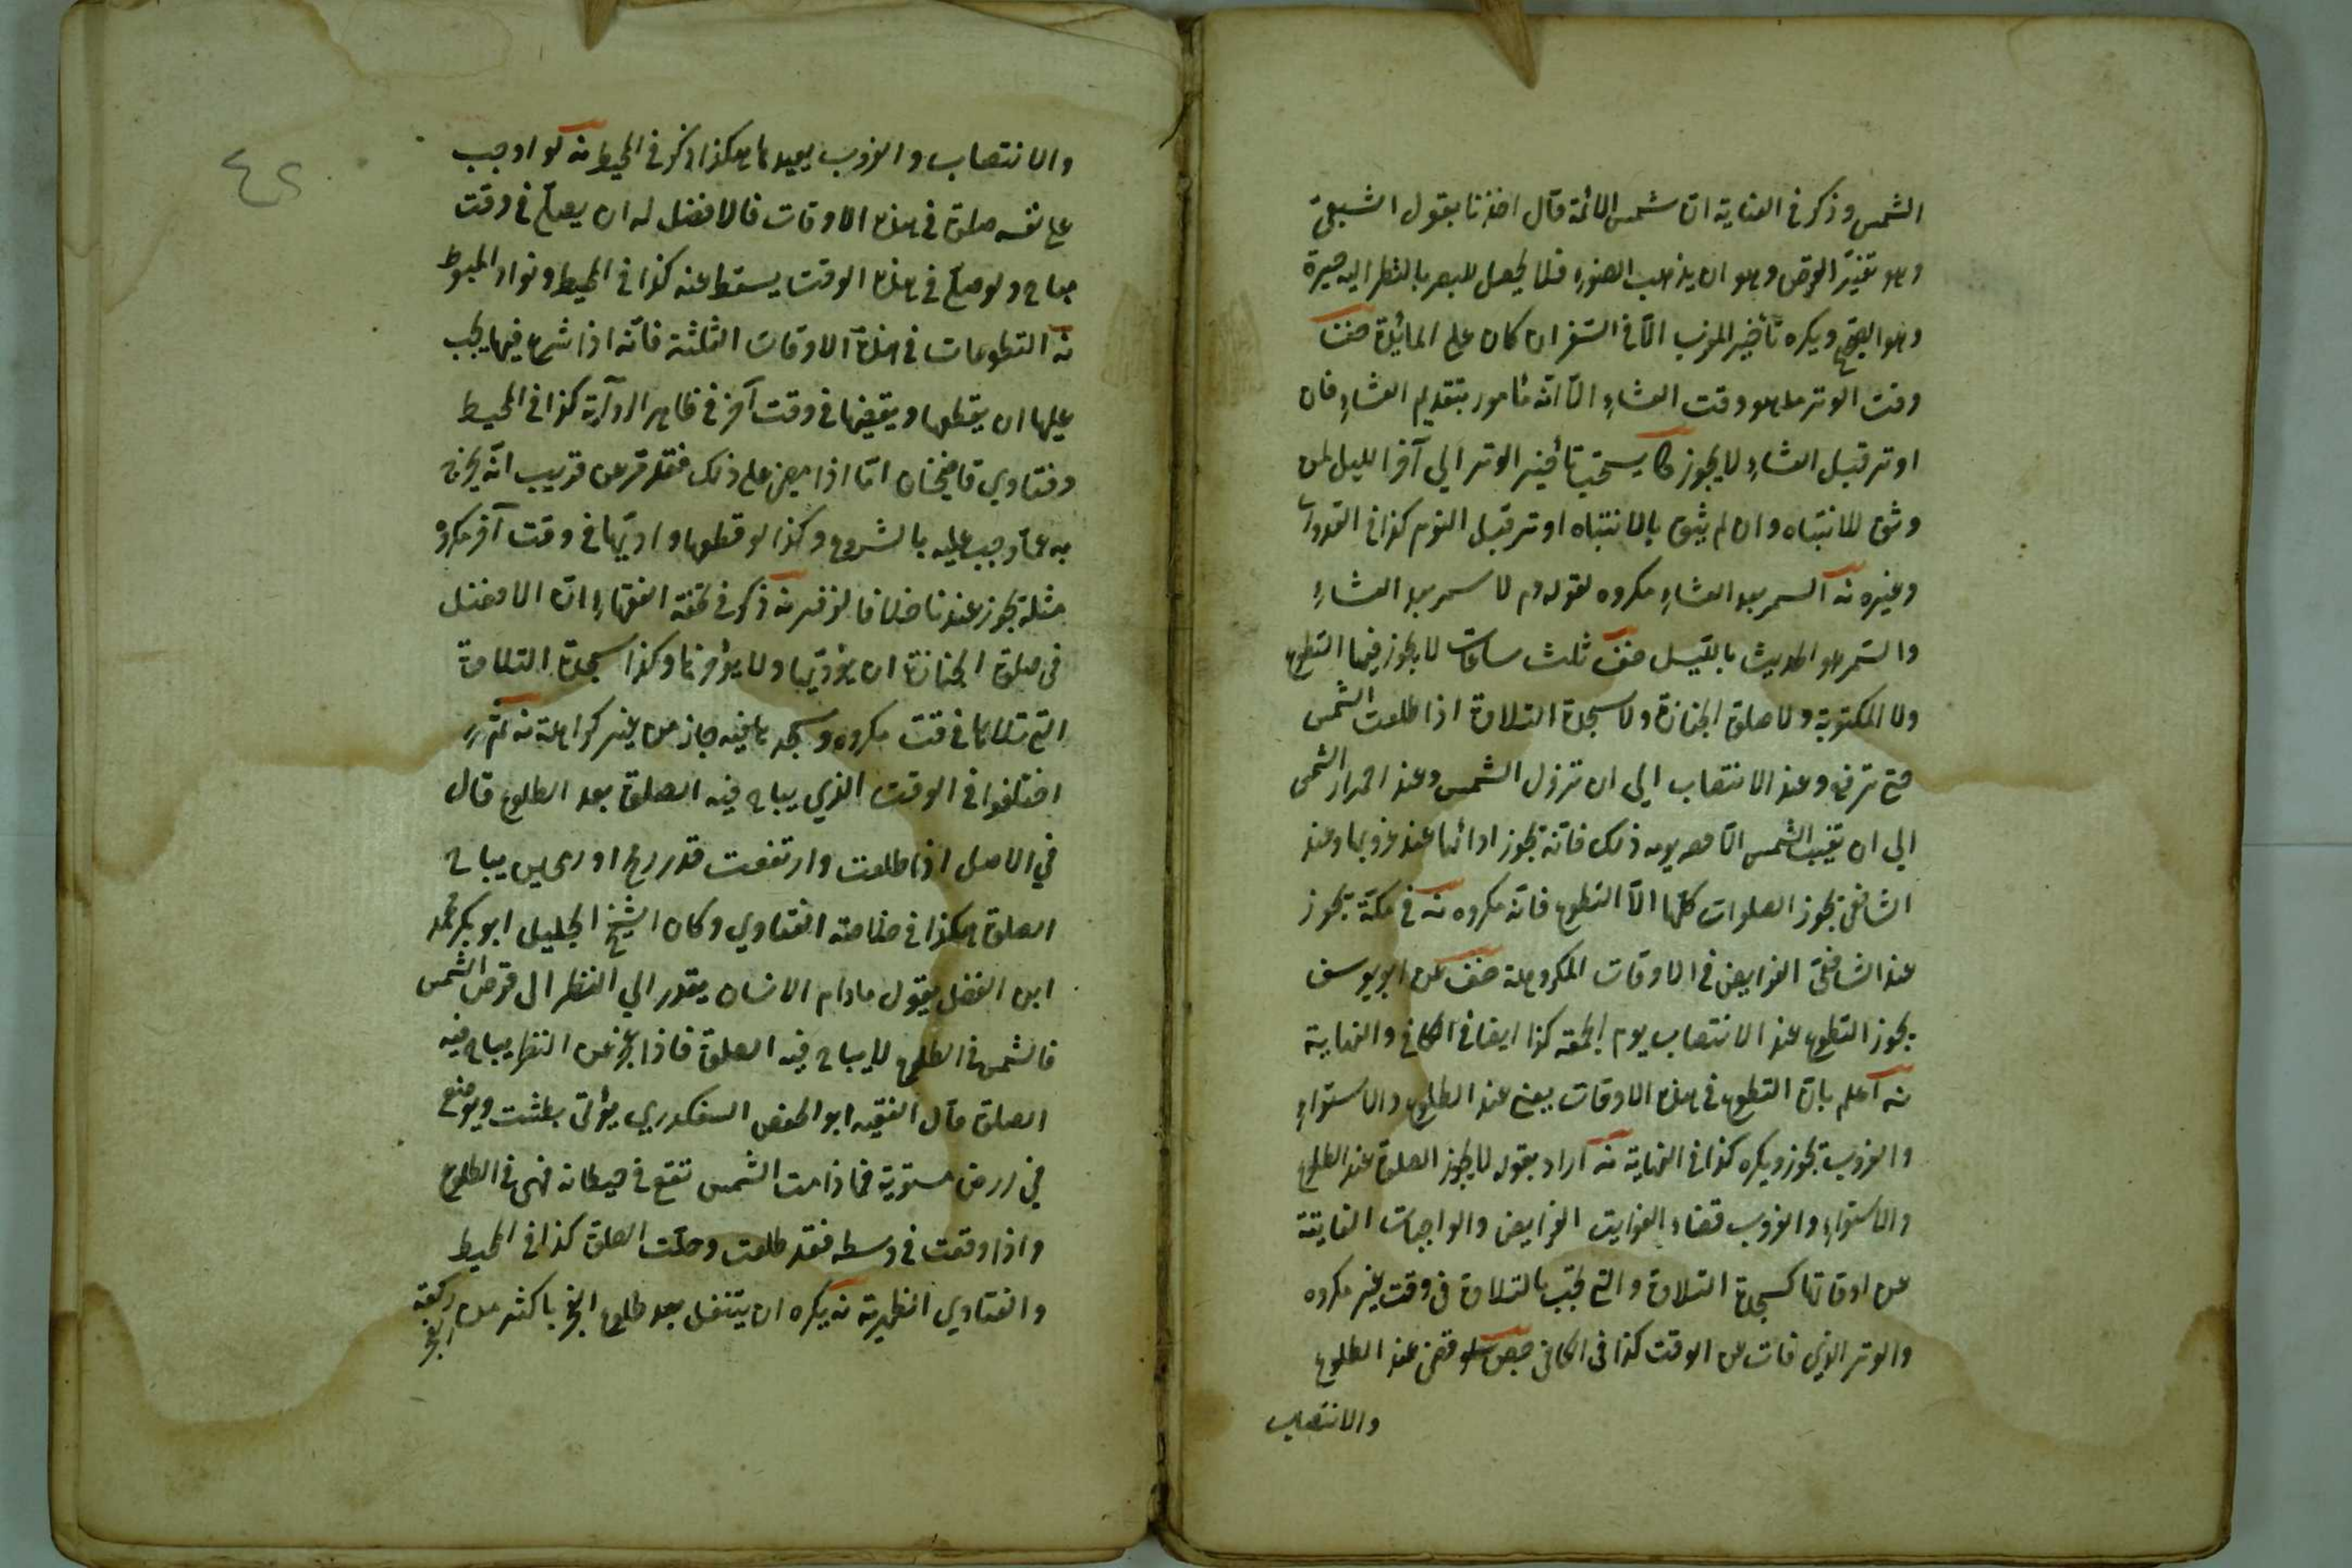 الشمس وذكر في العناية ان شمس الائمة قال اخذنا بقول الشعبي
وهو تغير القرص وهو ان يذهب الضوء فلا يحصل للبصر بالنظر اليه حيرة
وهو الصحيح ويكره تأخير المغرب الا في السفر ان كان على المائدة
وقت الوتر ما هو وقت العشاء الا انه مأمور بتقديم العشاء فان
اوتر قبل العشاء لا يجوز كما يستحب تأخير الوتر الي آخر الليل لمن
وثق للانتباه وان لم يثق بالانتباه اوتر قبل النوم كذا في القدوري
وغيره نه السمر بعد العشاء مكروه لقوله م لا سمر بعد العشاء
والسمر هو الحديث بالليل ثلث ساعات لا يجوز فيها التطوع
ولا المكتوبة ولا صلوة الجنازة ولا سجدة التلاوة اذا طلعت الشمس
حتي ترفع وعند الانتصاب الي ان تزول الشمس وعند احمرار الشمس
الي ان تغيب الشمس الا عصر يومه ذلك فانه تجوز ادائها عند غروبها وعند
الشافعي تجوز الصلوات كلها الا التطوع فانه مكروه نه في مكة يجوز
عند الشافعي الفرايض في الاوقات المكروهة عن ابو يوسف
يجوز التطوع عند الانتصاب يوم الجمعة كذا ايضا في الكافي والنهاية
نه اعلم بان التطوع في هذه الاوقات يعني عند الطلوع والاستواء
والغروب تجوز ويكره كذا في النهاية نه اراد بقوله لا يجوز الصلوة عند الطلوع
والاستواء والغروب قضاء الفوايت الفرايض والواجبات الفايتة
عن اوقاتها كسجدة التلاوة والتي تجب بالتلاوة في وقت غير مكروه
والوتر الذي فات عن الوقت كذا في الكافي لو قضي عند الطلوع
والانتصاب
٤٢
والانتصاب والغروب يعيدها هكذا ذكر في المحيط نه لو اوجب
علي نفسه صلوة في هذه الاوقات فالافضل له ان يصلي في وقت
مباح ولو صلي في هذه الوقت يسقط عنه كذا في المحيط ونوادر المبسوط
نه التطوعات في هذه الاوقات الثلثة فانه اذا شرع فيها يجب
عليها ان يقطعها ويقضيها في وقت آخر في ظاهر الرواية كذا في المحيط
وفتاوي قاضيخان اما اذا مضي علي ذلك فقد مر عن قريب انه يخرج
به عما وجب عليه بالشروع وكذا لو قطعها واديها في وقت آخر مكروه
مثله تجوز عندنا خلافا لزفر نه ذكر في تحفة الفقهاء ان الافضل
في صلوة الجنازة ان يؤديها ولا يؤخرها وكذا سجدة التلاوة
التي تلاها في وقت مكروه وسجدها فيه جاز من غير كراهة نه ثم
اختلفوا في الوقت الذي يباح فيه الصلوة بعد الطلوع قال
في الاصل اذا طلعت وارتفعت قدر رمح او رمحين يباح
الصلوة هكذا في خلاصة الفتاوي وكان الشيخ الجليل ابو بكر محمد
ابن الفضل يقول مادام الانسان يقدر الي النظر الى قرص الشمس
فالشمس في الطلوع لا يباح فيه الصلوة فاذا عجز عن النظر يباح فيه
الصلوة قال الفقيه ابو الحفص السفكدري يؤتي بطشت ويوضع
في ارض مستوية فما دامت الشمس تقع في حيطانه فهي في الطلوع
واذا وقعت في وسطه فقد طلعت وحلت الصلوة كذا في المحيط
والفتاوي الظهيرية نه يكره ان يتنفل بعد طلوع الفجر باكثر من ركعة
الفجر